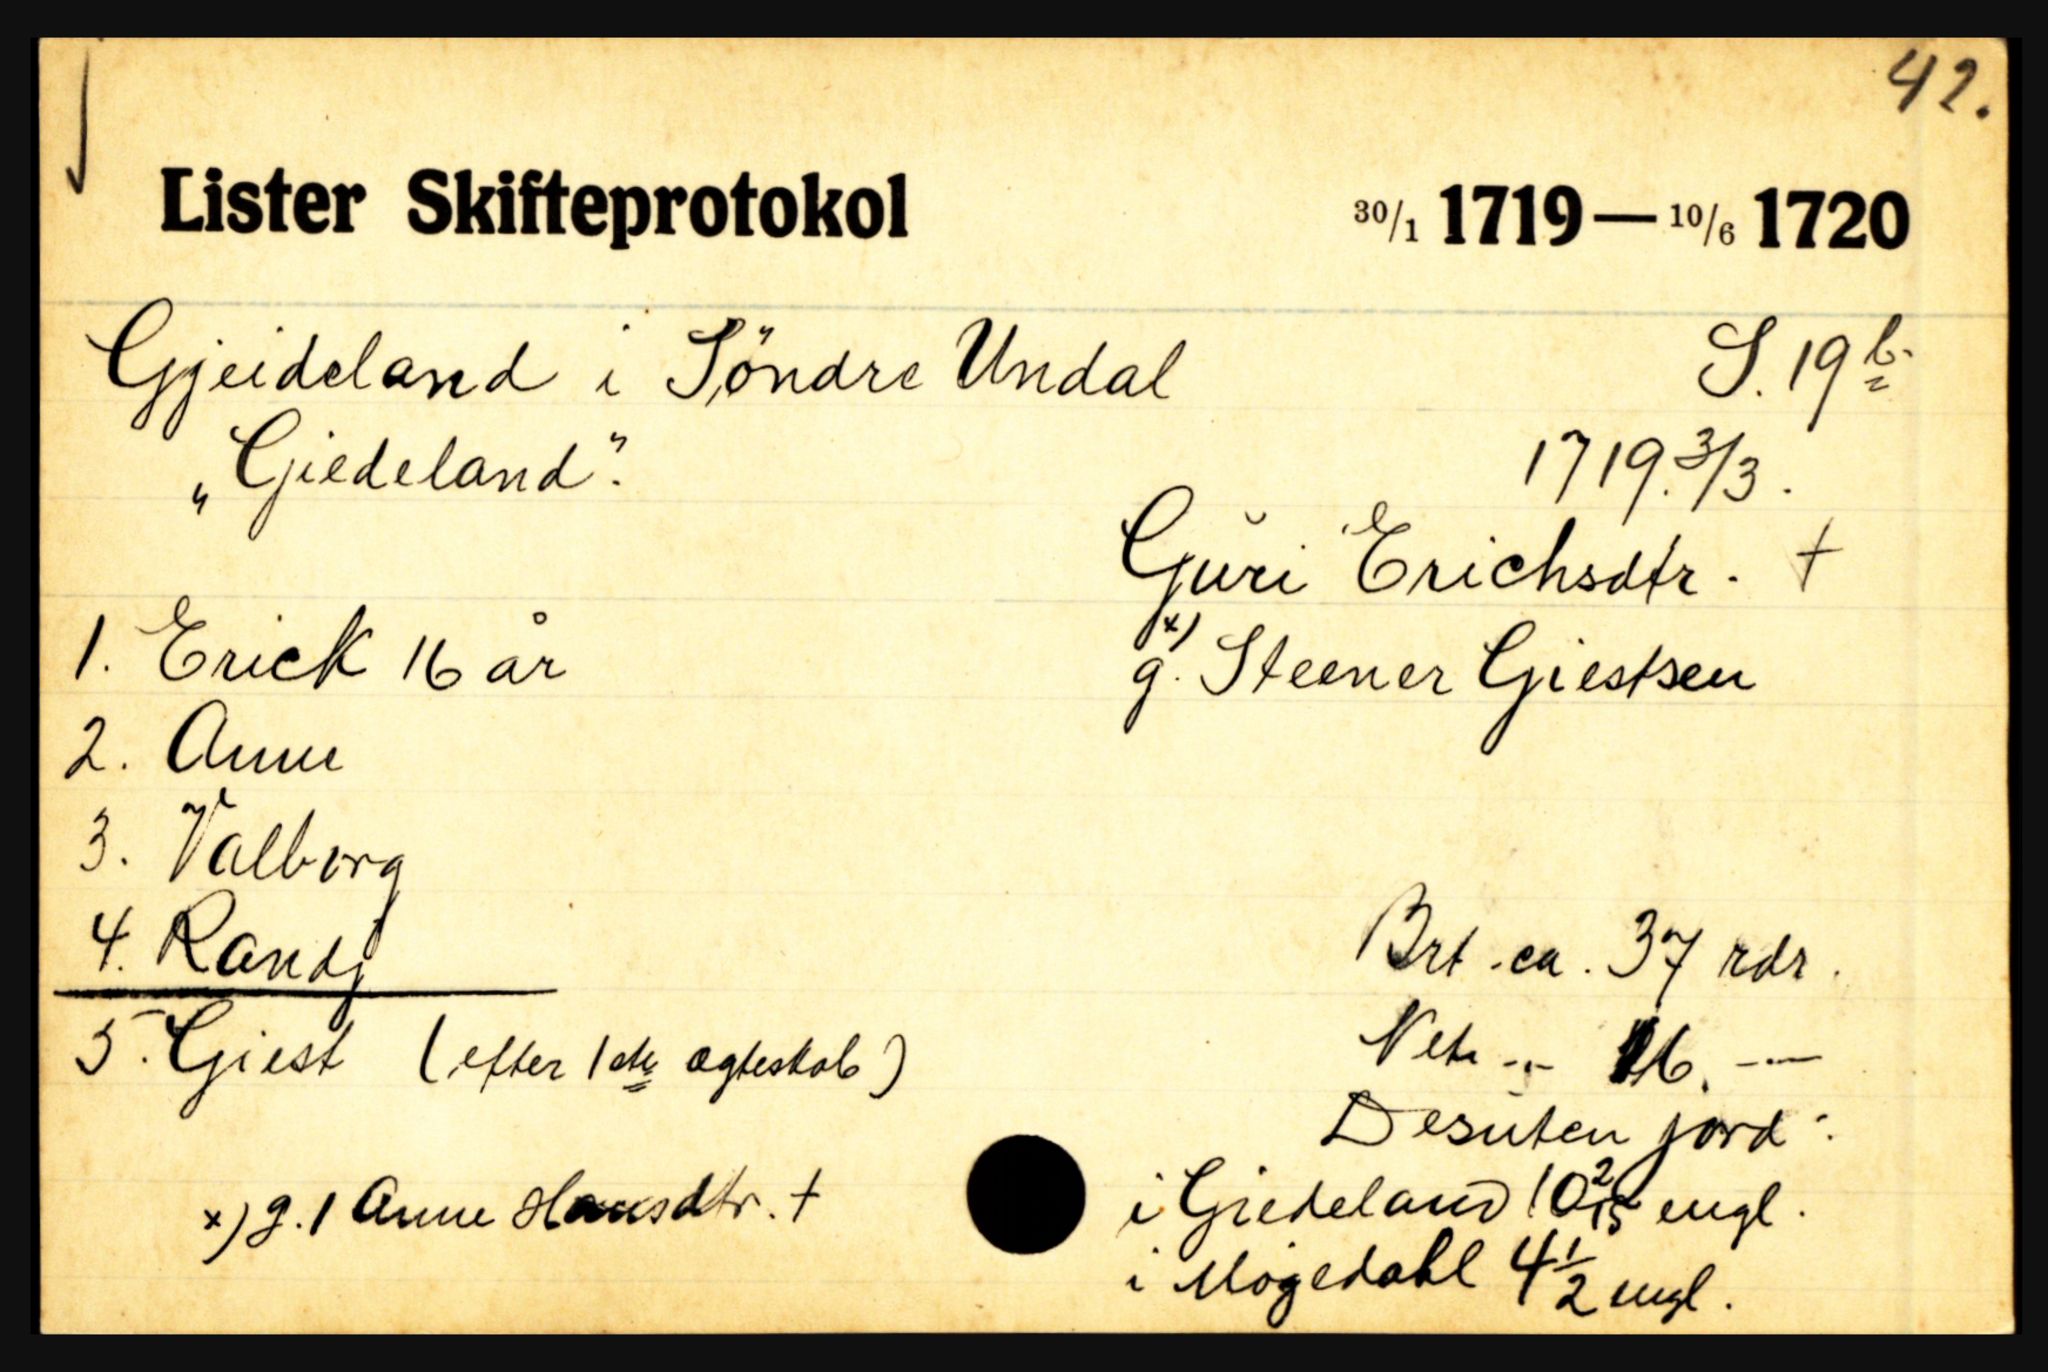 42.
Lister Skifteprotokol 30/1 1719 — 10/6 1720
Gjeideland i Söndre Undal S. 19 b.
„Giedeland". 1719. 3/3.
Guri Erichsdtr. †
1. Erick 16 år x) g. Steener Giestsen
2. Anne
3. Valborg
4. Randj Brt. ca. 37 rdr.
5. Giest (efter 1ste ægteskab) Neto -"- 16. -"-
Desuten jord:
x) g. 1 Anne Hansdtr. † i Giedeland 10 2/15 engl.
i Mögedahl 4 1/2 engl.